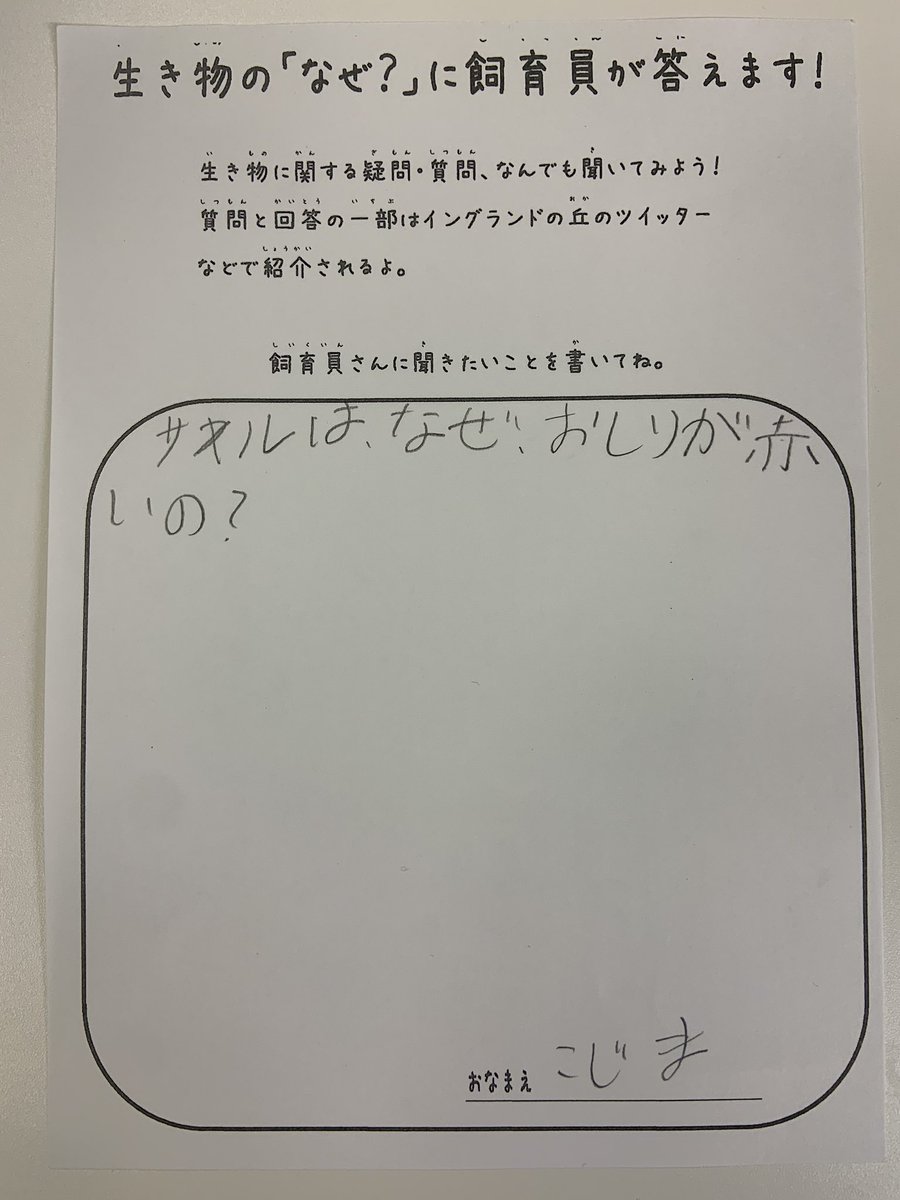 生き物の「なぜ?」に飼育員が答えます!
生き物に関する疑問・質問、なんでも聞いてみよう!
質問と回答の一部はイングランドの丘のツイッター
などで紹介されるよ。
飼育員さんに聞きたいことを書いてね。
サルは、なぜ、おしりが赤
いの?
おなまえ こじま